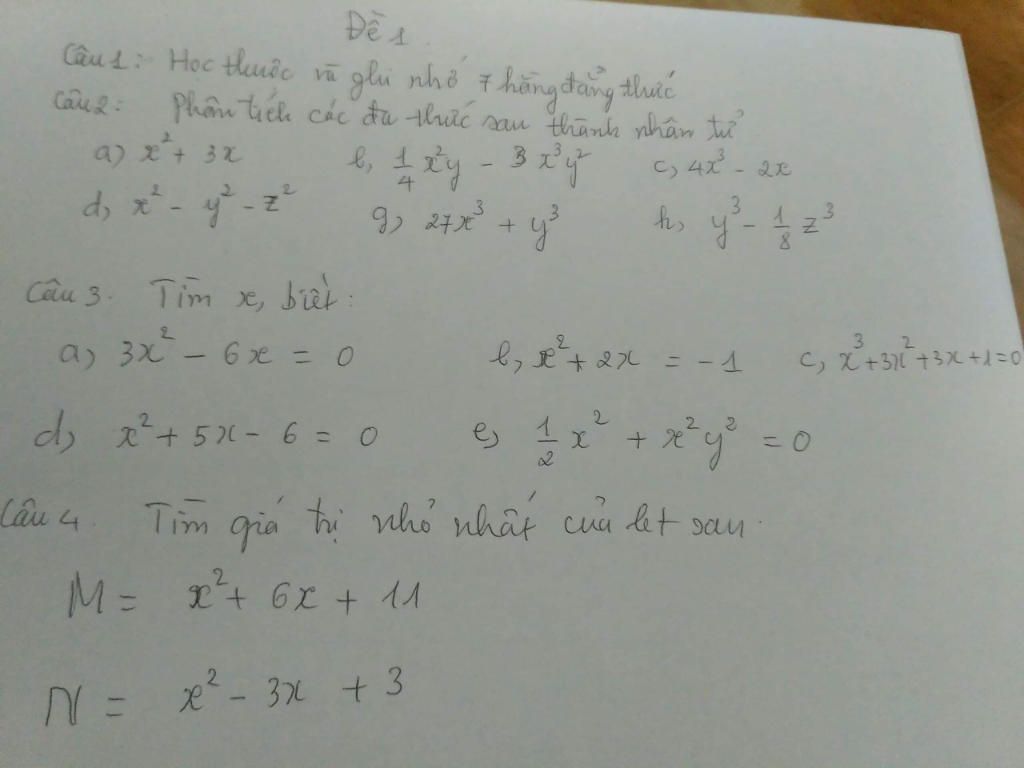 Đề 1.
Câu 1: Học thuộc và ghi nhớ 7 hằng đẳng thức
Câu 2: Phân tích các đa thức sau thành nhân tử
a) x² + 3x b, 1/4 x²y - 3 x³y² c, 4x³ - 2x
d, x² - y² - z² g, 27x³ + y³ h, y³ - 1/8 z³
Câu 3. Tìm x, biết:
a, 3x² - 6x = 0 b, x² + 2x = -1 c, x³+3x²+3x+1=0
d, x² + 5x - 6 = 0 e, 1/2 x² + x²y² = 0
Câu 4. Tìm giá trị nhỏ nhất của bt sau.
M = x² + 6x + 11
N = x² - 3x + 3